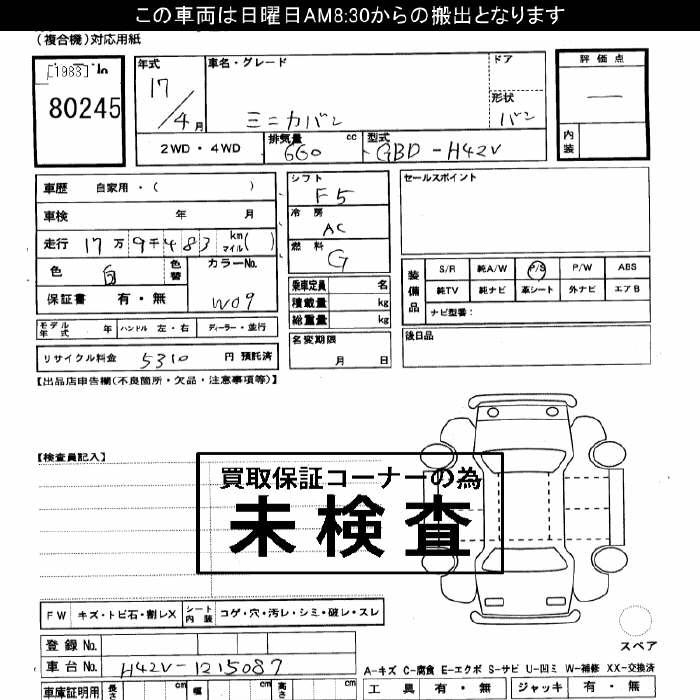 この車両は日曜日AM8:30からの搬出となります
(複合機)対応用紙
[1983]
80245
年式
17/4月
車名・グレード
ミニカバン
ドア
形状
バン
評価点
—
内装
2WD・4WD
排気量
660
cc
型式
GBD-H42V
車歴 自家用・( )
車検 年 月
走行 17万9千483 km マイル( )
色 白 色替
カラーNo.
W09
保証書 有・無
モデル年式 年 ハンドル 左・右 ディーラー・並行
リサイクル料金 5310 円 預託済
シフト
F5
冷房
AC
燃料
G
乗車定員 名
積載量 kg
総重量 kg
名変期限
月 日
セールスポイント
装備品
S/R 純A/W P/S P/W ABS
純TV 純ナビ 革シート 外ナビ エアB
ナビ型番:
後日品
【出品店申告欄(不良箇所・欠品・注意事項等)】
【検査員記入】
買取保証コーナーの為
未検査
FW キズ・トビ石・割レX シート内装 コゲ・穴・汚レ・シミ・破レ・スレ
登録No.
車台No. H42V-1215087
車庫証明用 長さ cm 幅 cm 高さ cm
スペア
A-キズ C-腐食 E-エクボ S-サビ U-凹ミ W-補修 XX-交換済
工具 有・無 ジャッキ 有・無